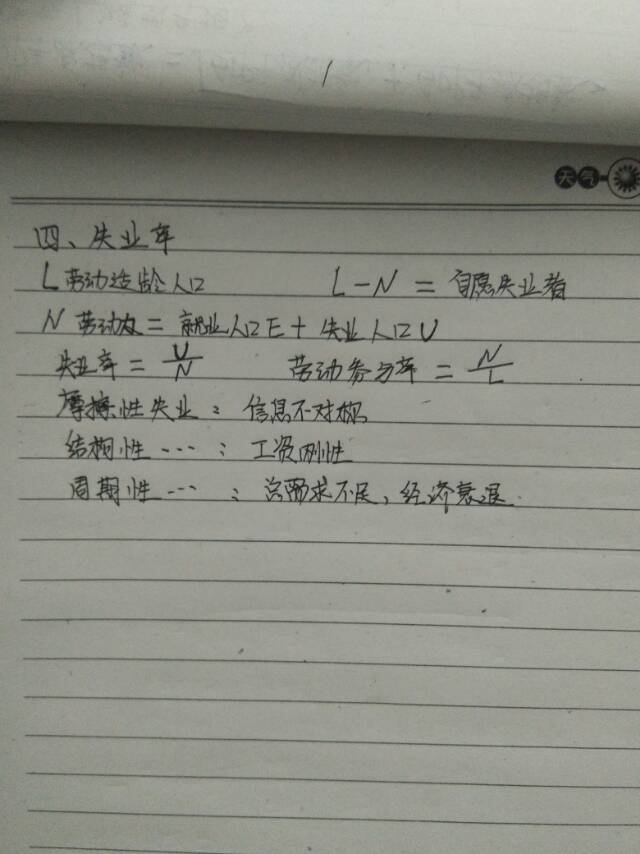 天气
四、失业率
L 劳动适龄人口 L-N = 自愿失业者
N 劳动力 = 就业人口E + 失业人口U
失业率 = U/N 劳动参与率 = N/L
摩擦性失业：信息不对称
结构性…：工资刚性
周期性…：总需求不足，经济衰退.